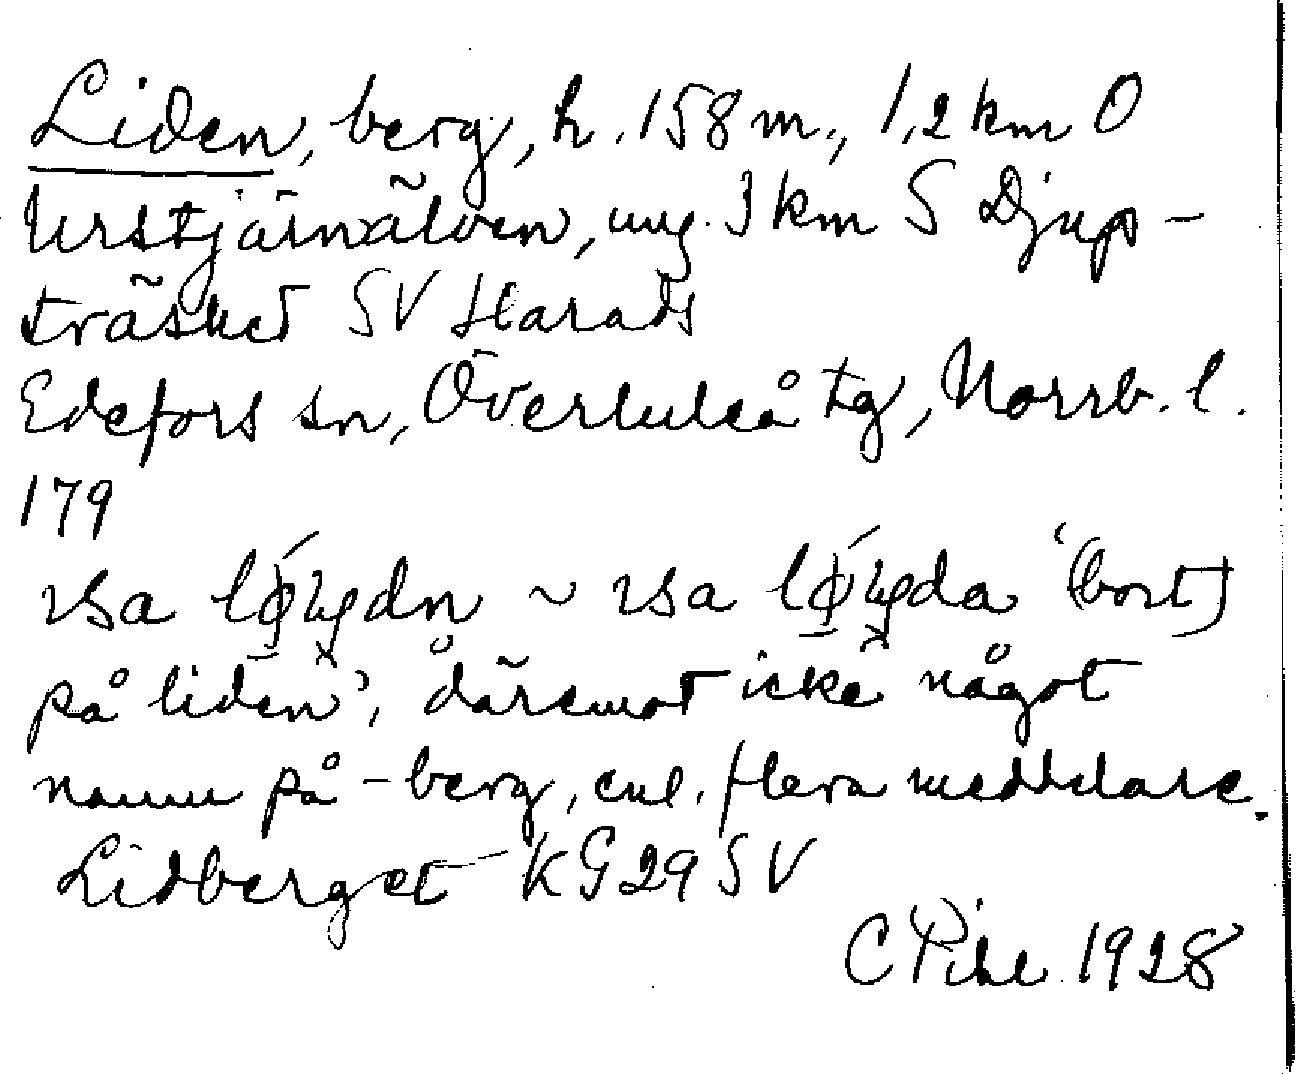 Liden, berg, h. 158 m., 1,2 km O
Urstjärnälven, ung. 3 km S Djup-
träsket SV Harads
Edefors sn, Överluleå tg, Norrb. l.
179
dn ~ da ‘(bort)
på liden’, däremot icke något
namn på -berg, enl. flera meddelare.
Lidberget KG 29 SV
C Pihl 1928